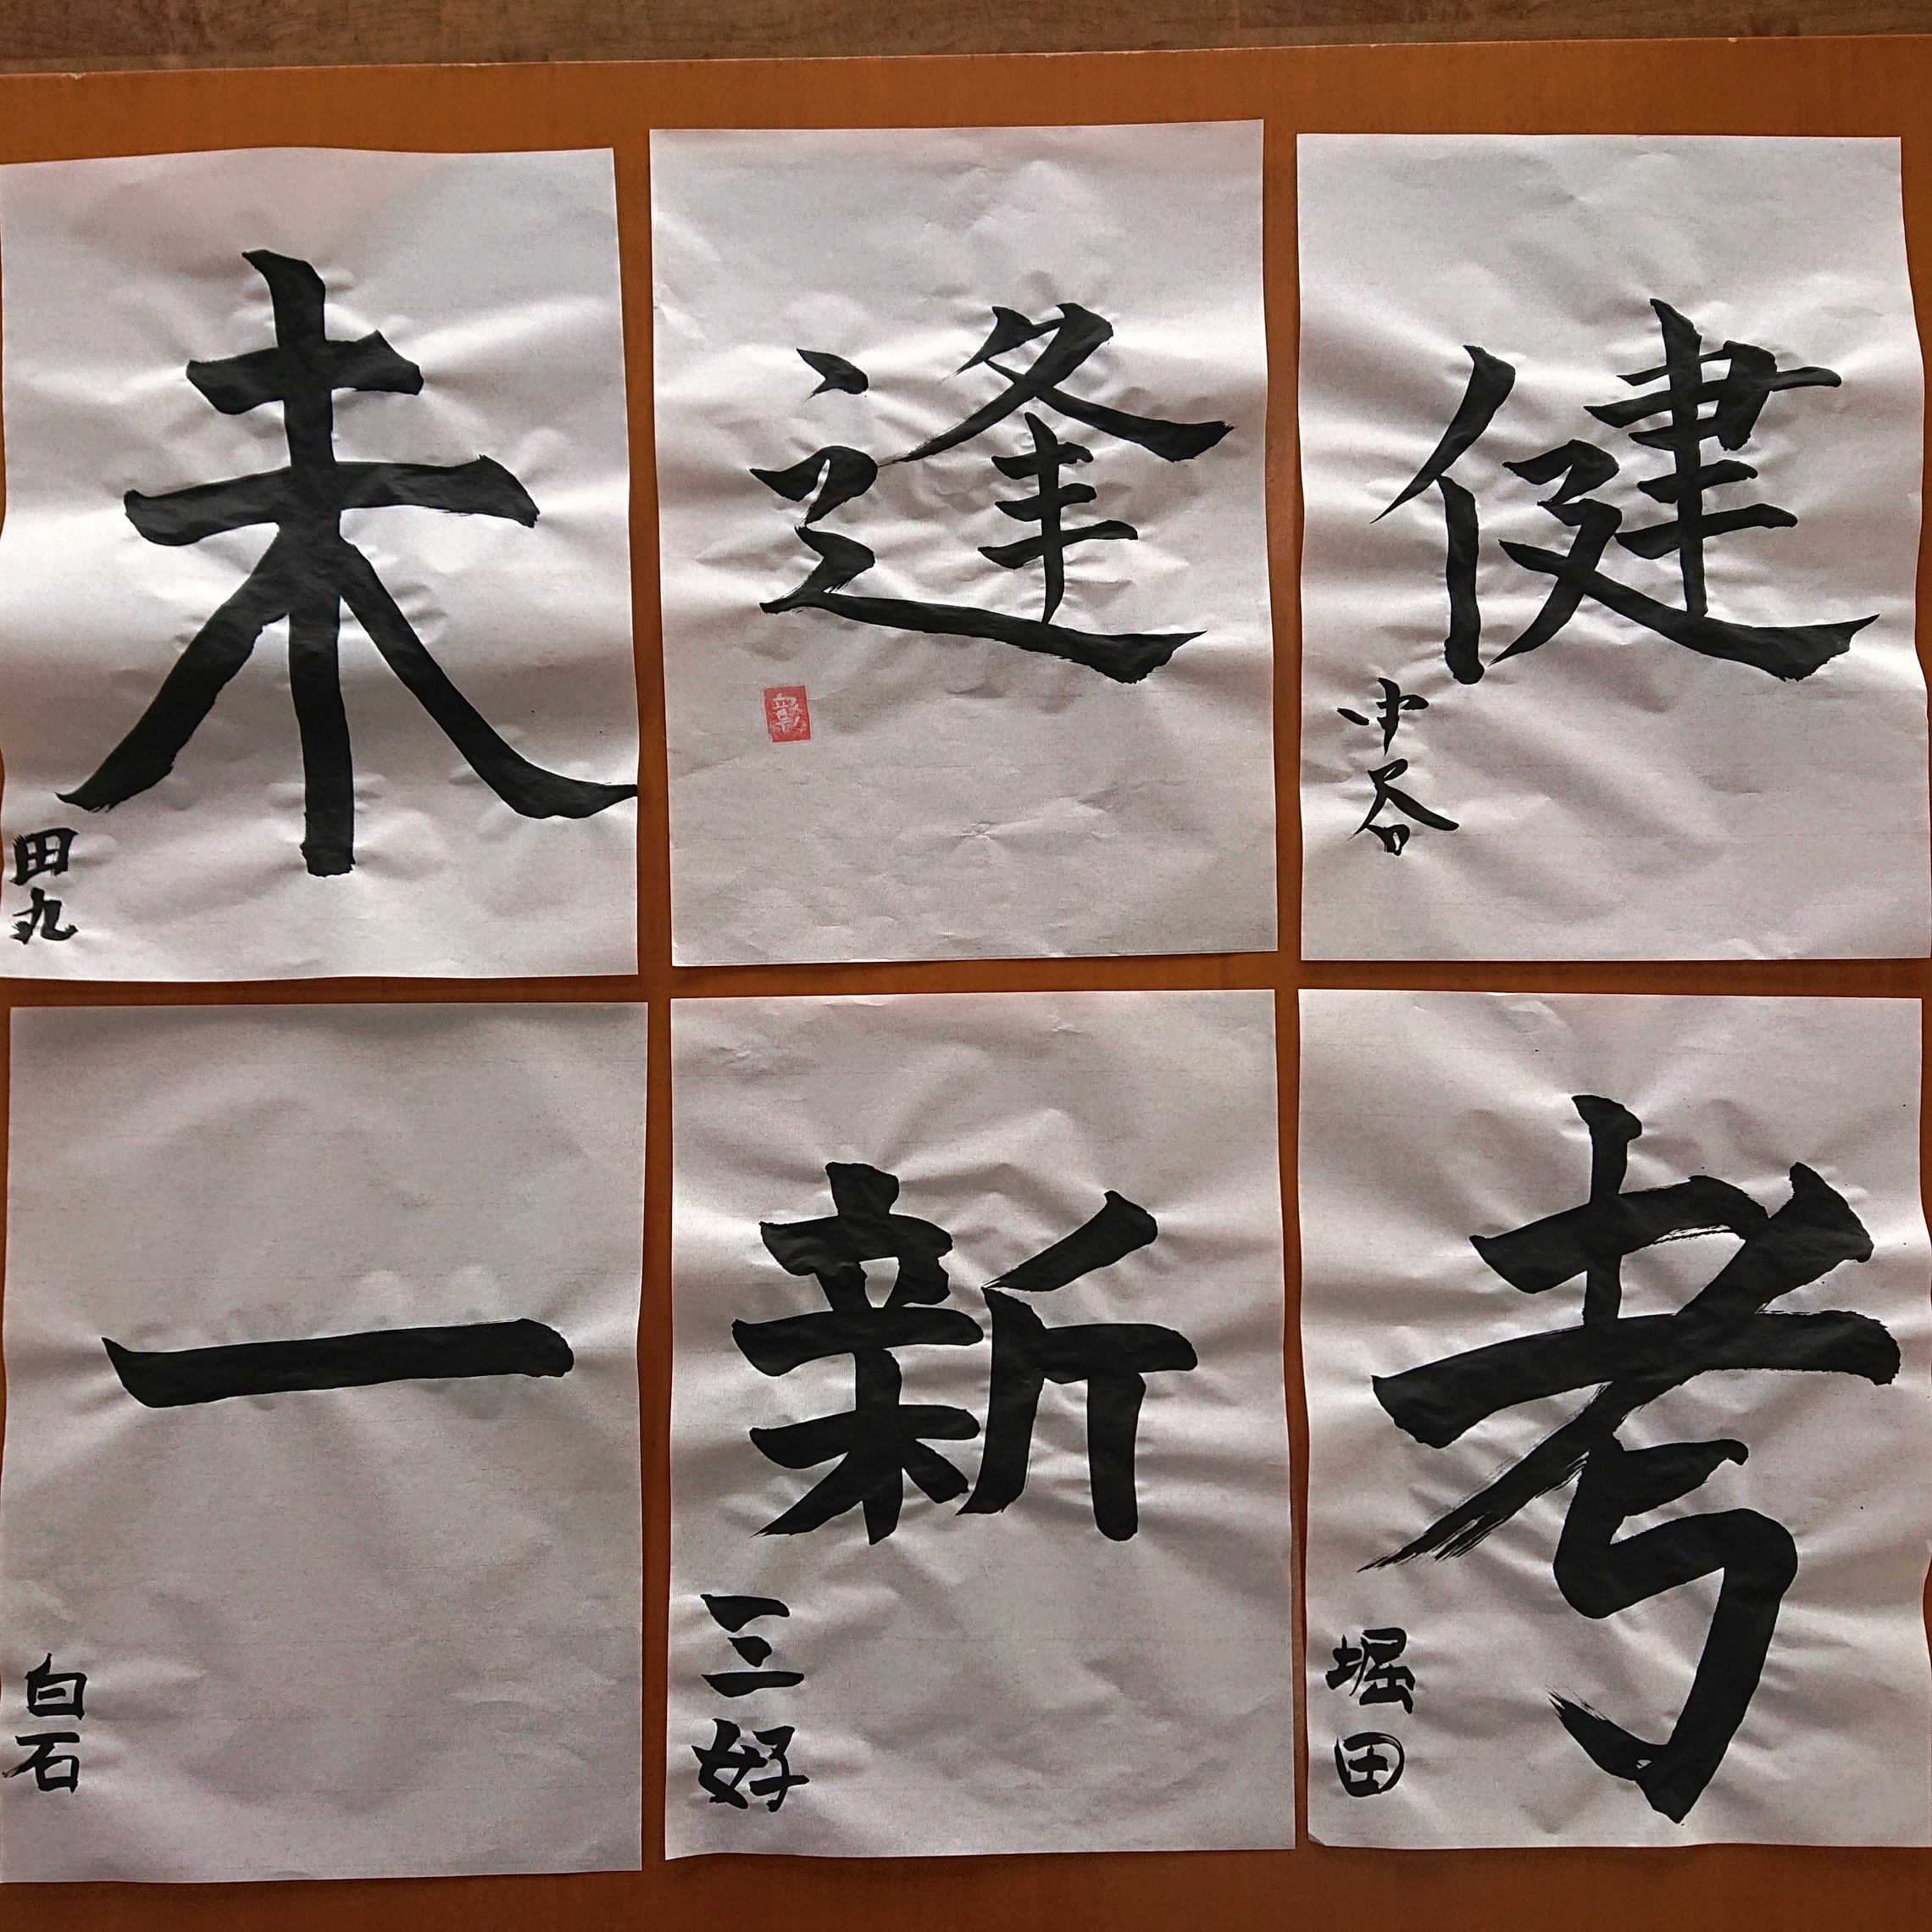 未
田丸
逢
健
中谷
一
白石
新
三好
考
堀田